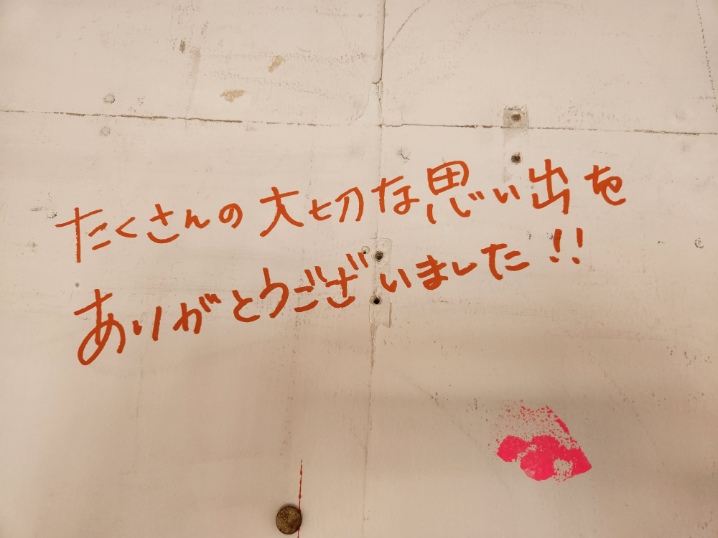 たくさんの大切な思い出を
ありがとうございました!!